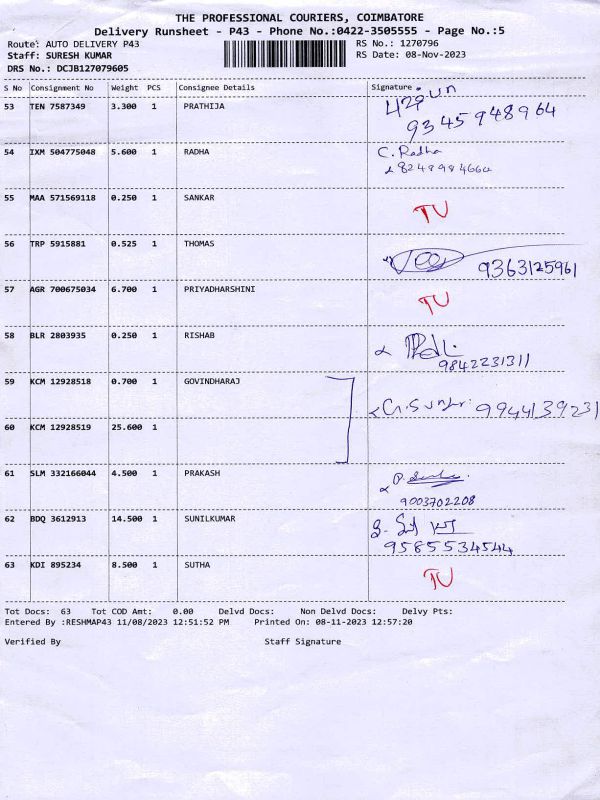 THE PROFESSIONAL COURIERS, COIMBATORE
Delivery Runsheet - P43 - Phone No.:0422-3505555 - Page No.:5
Route: AUTO DELIVERY P43 RS No.: 1270796
Staff: SURESH KUMAR RS Date: 08-Nov-2023
DRS No.: DCJB127079605
S No Consignment No Weight PCS Consignee Details Signature
53 TEN 7587349 3.300 1 PRATHIJA
9345948964
54 IXM 504775048 5.600 1 RADHA C. Radha
8248984664
55 MAA 571569118 0.250 1 SANKAR TU
56 TRP 5915881 0.525 1 THOMAS
9363125961
57 AGR 700675034 6.700 1 PRIYADHARSHINI TU
58 BLR 2803935 0.250 1 RISHAB
9842231311
59 KCM 12928518 0.700 1 GOVINDHARAJ
9944139231
60 KCM 12928519 25.600 1
61 SLM 332166044 4.500 1 PRAKASH
9003702208
62 BDQ 3612913 14.500 1 SUNILKUMAR
9585534544
63 KDI 895234 8.500 1 SUTHA TU
Tot Docs: 63 Tot COD Amt: 0.00 Delvd Docs: Non Delvd Docs: Delvy Pts:
Entered By :RESHMAP43 11/08/2023 12:51:52 PM Printed On: 08-11-2023 12:57:20
Verified By Staff Signature